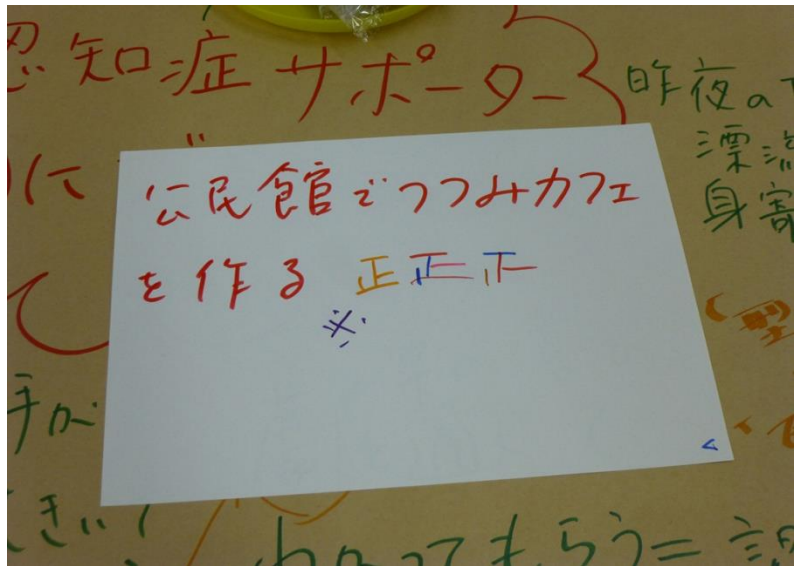 認知症 サポーター
昨夜の
漂流
身寄
に
公民館でつつみカフェ
を作る 正正正
※
て
手が
わかってもらう=認